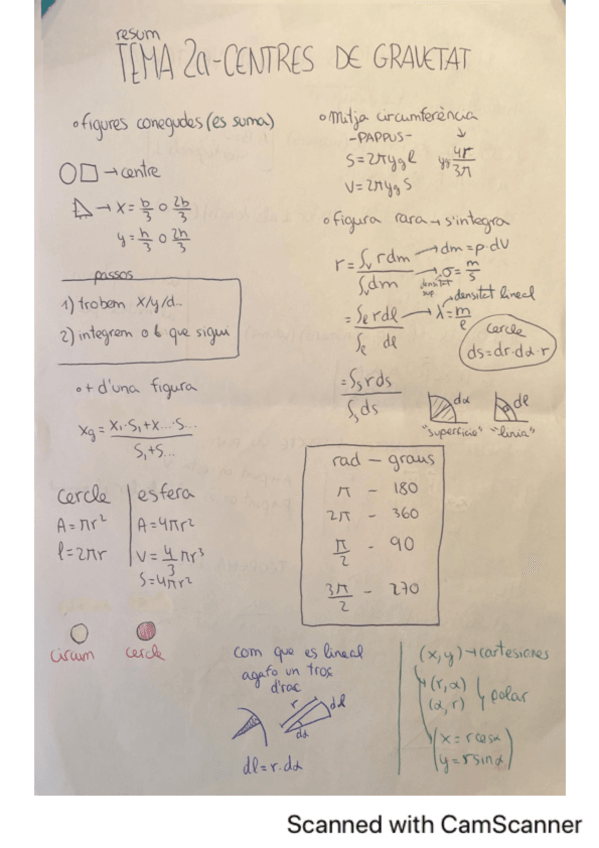 resum
TEMA 2a-CENTRES DE GRAVETAT
• figures conegudes (es suma)
→ centre
→ x = b/3 o 2b/3
y = h/3 o 2h/3
passos
1) trobem x/y/d...
2) integrem o que sigui
• + d'una figura
xg = x₁·S₁+x...·S... / S₁+S...
cercle
A = πr²
l = 2πr
esfera
A = 4πr²
V = 4/3 πr³
S = 4πr²
circum
cercle
• Mitja circumferència
-PAPPUS-
S = 2πyg l
yg 4r/3π
V = 2πyg S
• figura rara → s'integra
r = ∫v r dm / ∫v dm → dm = ρ·dV
→ σ = m/s
densitat sup.
densitat lineal
= ∫e r dl / ∫e dl → λ = m/e
cercle
ds = dr·dα·r
= ∫s r ds / ∫s ds
dα
dl
"superficie" "linia"
rad – graus
π – 180
2π – 360
π/2 - 90
3π/2 – 270
com que es lineal
agafo un tros
d'roc
r
dl
dα
dl = r·dα
(x,y) → cartesianes
(r,α)
(α,r)
polar
x = r cosα
y = r sinα
Scanned with CamScanner